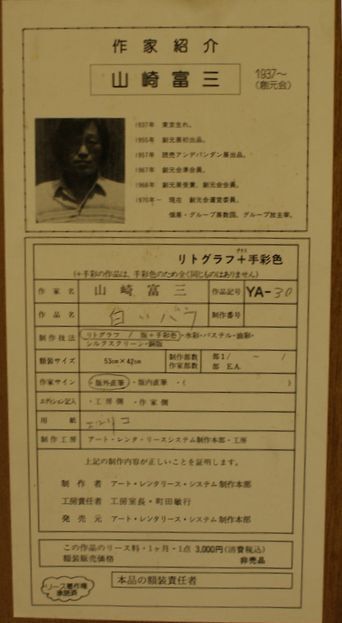 作家紹介
山崎富三
1937〜
(創元会)
1937年 東京生れ。
1955年 創元展初出品。
1957年 読売アンデパンダン展出品。
1967年 創元会準会員。
1968年 創元展受賞、創元会会員。
1970年〜現在 創元会運営委員。
個展・グループ展数回、グループ放主宰。
リトグラフ+手彩色
(+手彩の作品は、手彩色のため全く同じものはありません)
作家名 山崎富三 作品記号 YA-30
作品名 白いバラ 制作番号
制作技法 リトグラフ / 版+手彩色・水彩・パステル・油彩・
シルクスクリーン・銅版
額装サイズ 53cm×42cm 制作部数 部 1/ 〜 /
作家部数 部 E.A.
作家サイン ・版外直筆・版内直筆・( )
エディション記入 ・工房側 ・作家側
用紙
制作工房 アート・レンタ・リースシステム制作本部・工房
上記の制作内容が正しいことを証明します。
制作者 アート・レンタリース・システム制作本部
工房責任者 工房室長・町田敏行
発売元 アート・レンタリース・システム制作本部
この作品のリース料・1ヶ月・1点 3,000円(消費税込)
額装販売価格 非売品
リース著作権
承諾済
本品の額装責任者